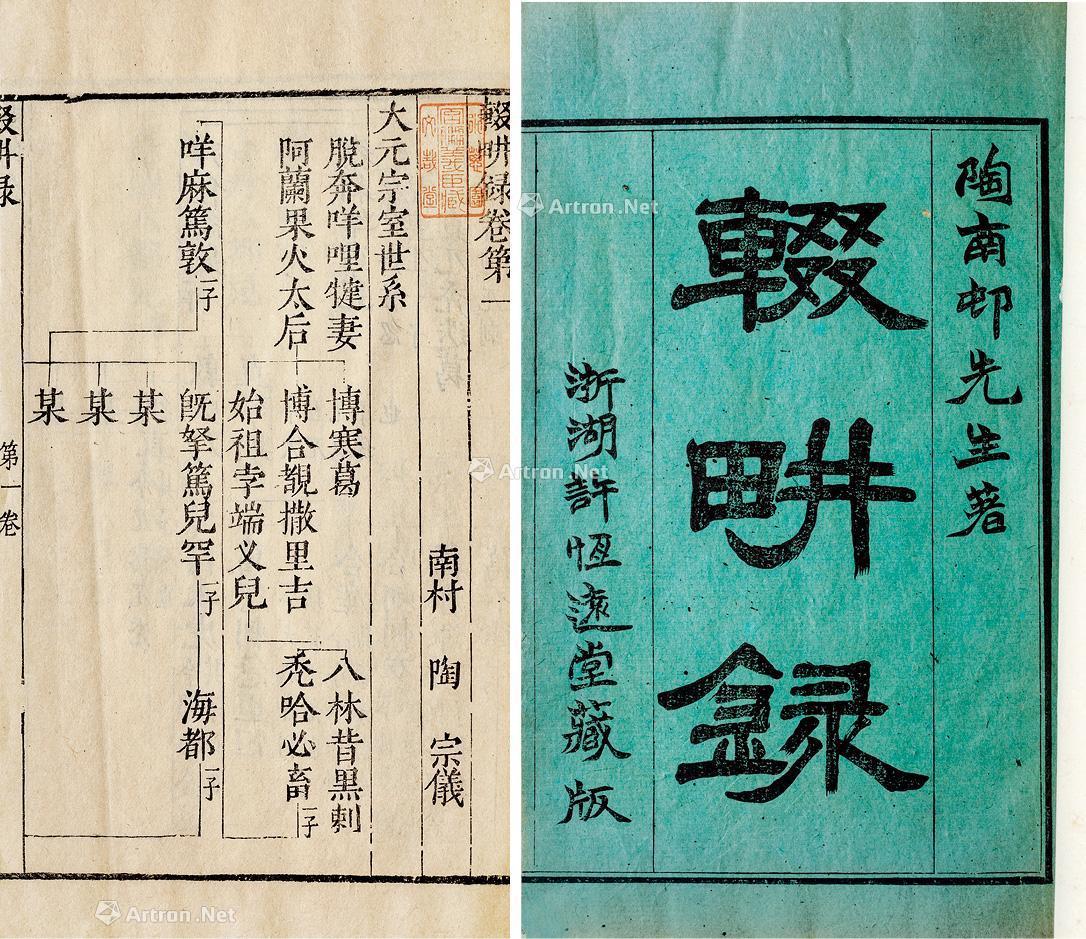 輟畊錄卷第一
南村 陶 宗儀
大元宗室世系
脫奔咩哩犍妻 博寒葛 八林昔黑剌
阿蘭果火太后 博合覩撒里吉 禿哈必畜 一子
始祖孛端义兒
咩麻篤敦 一子 旣拏篤兒罕 一子 海都 一子
某
某
某
第一卷
陶南邨先生著
輟畊錄
浙湖許恆遠堂藏版
Artron.Net
Artron.Net
Artron.Net